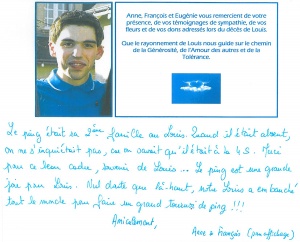 Anne, François et Eugénie vous remercient de votre
présence, de vos témoignages de sympathie, de vos
fleurs et de vos dons adressés lors du décès de Louis.
Que le rayonnement de Louis nous guide sur le chemin
de la Générosité, de l'Amour des autres et de la
Tolérance.
Le ping était sa 2ème famille au Louis. Quand il était absent,
on ne s'inquiétait pas, on savait qu'il était à la 4S. Merci
pour ce beau cadre, souvenir de Louis... Le ping est une grande
joie pour Louis. Nul doute que là-haut, notre Louis a embauché
tout le monde pour faire un grand tournoi de ping !!!
Amicalement,
Anne & François (pour affichage)